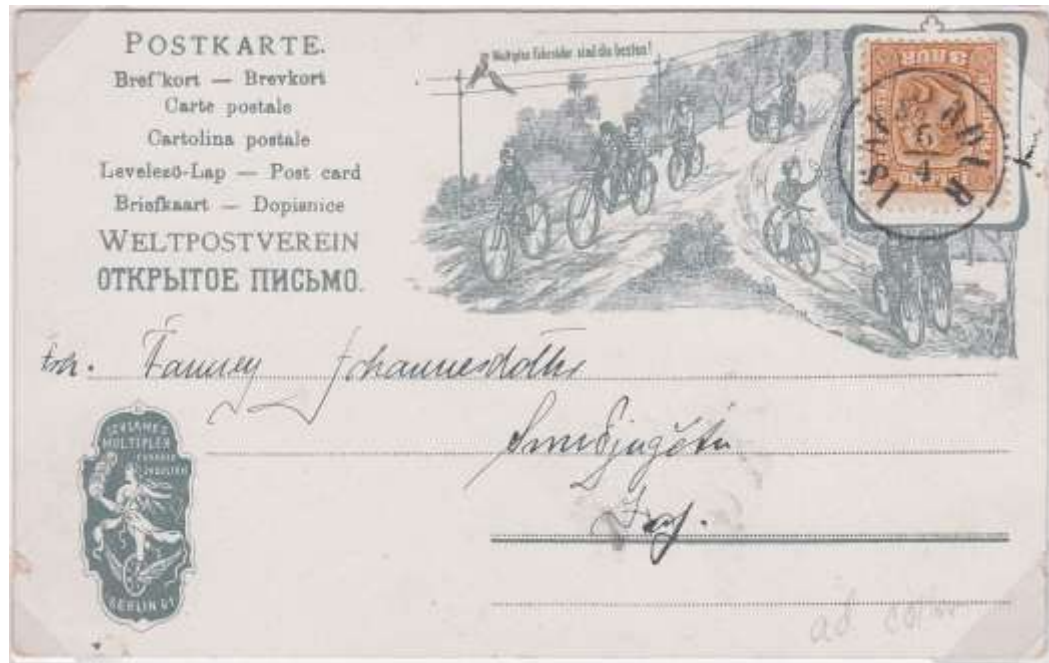 POSTKARTE.
Brefkort — Brevkort
Carte postale
Cartolina postale
Levelező-Lap — Post card
Briefkaart — Dopisnice
WELTPOSTVEREIN
ОТКРЫТОЕ ПИСЬМО.
Multiplex Fahrräder sind die besten!
3 AUR
6
4
Frk. Fanney Johannesdóttir
Smiðjugötu
Isaf.
MULTIPLEX
FAHRRAD
INDUSTRIE
BERLIN 61